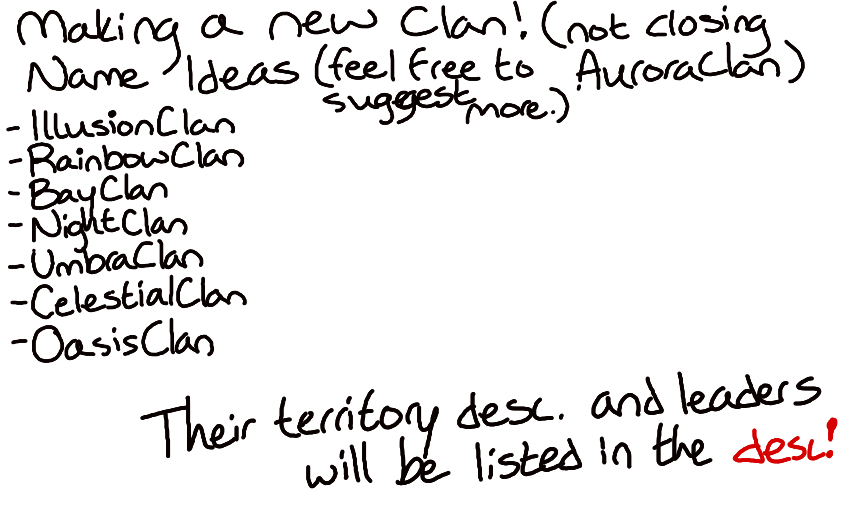 Making a new Clan! (not closing
Name Ideas (feel free to AuroraClan)
suggest more.)
- IllusionClan
- RainbowClan
- BayClan
- NightClan
- UmbraClan
- CelestialClan
- OasisClan
Their territory desc. and leaders
will be listed in the desc!